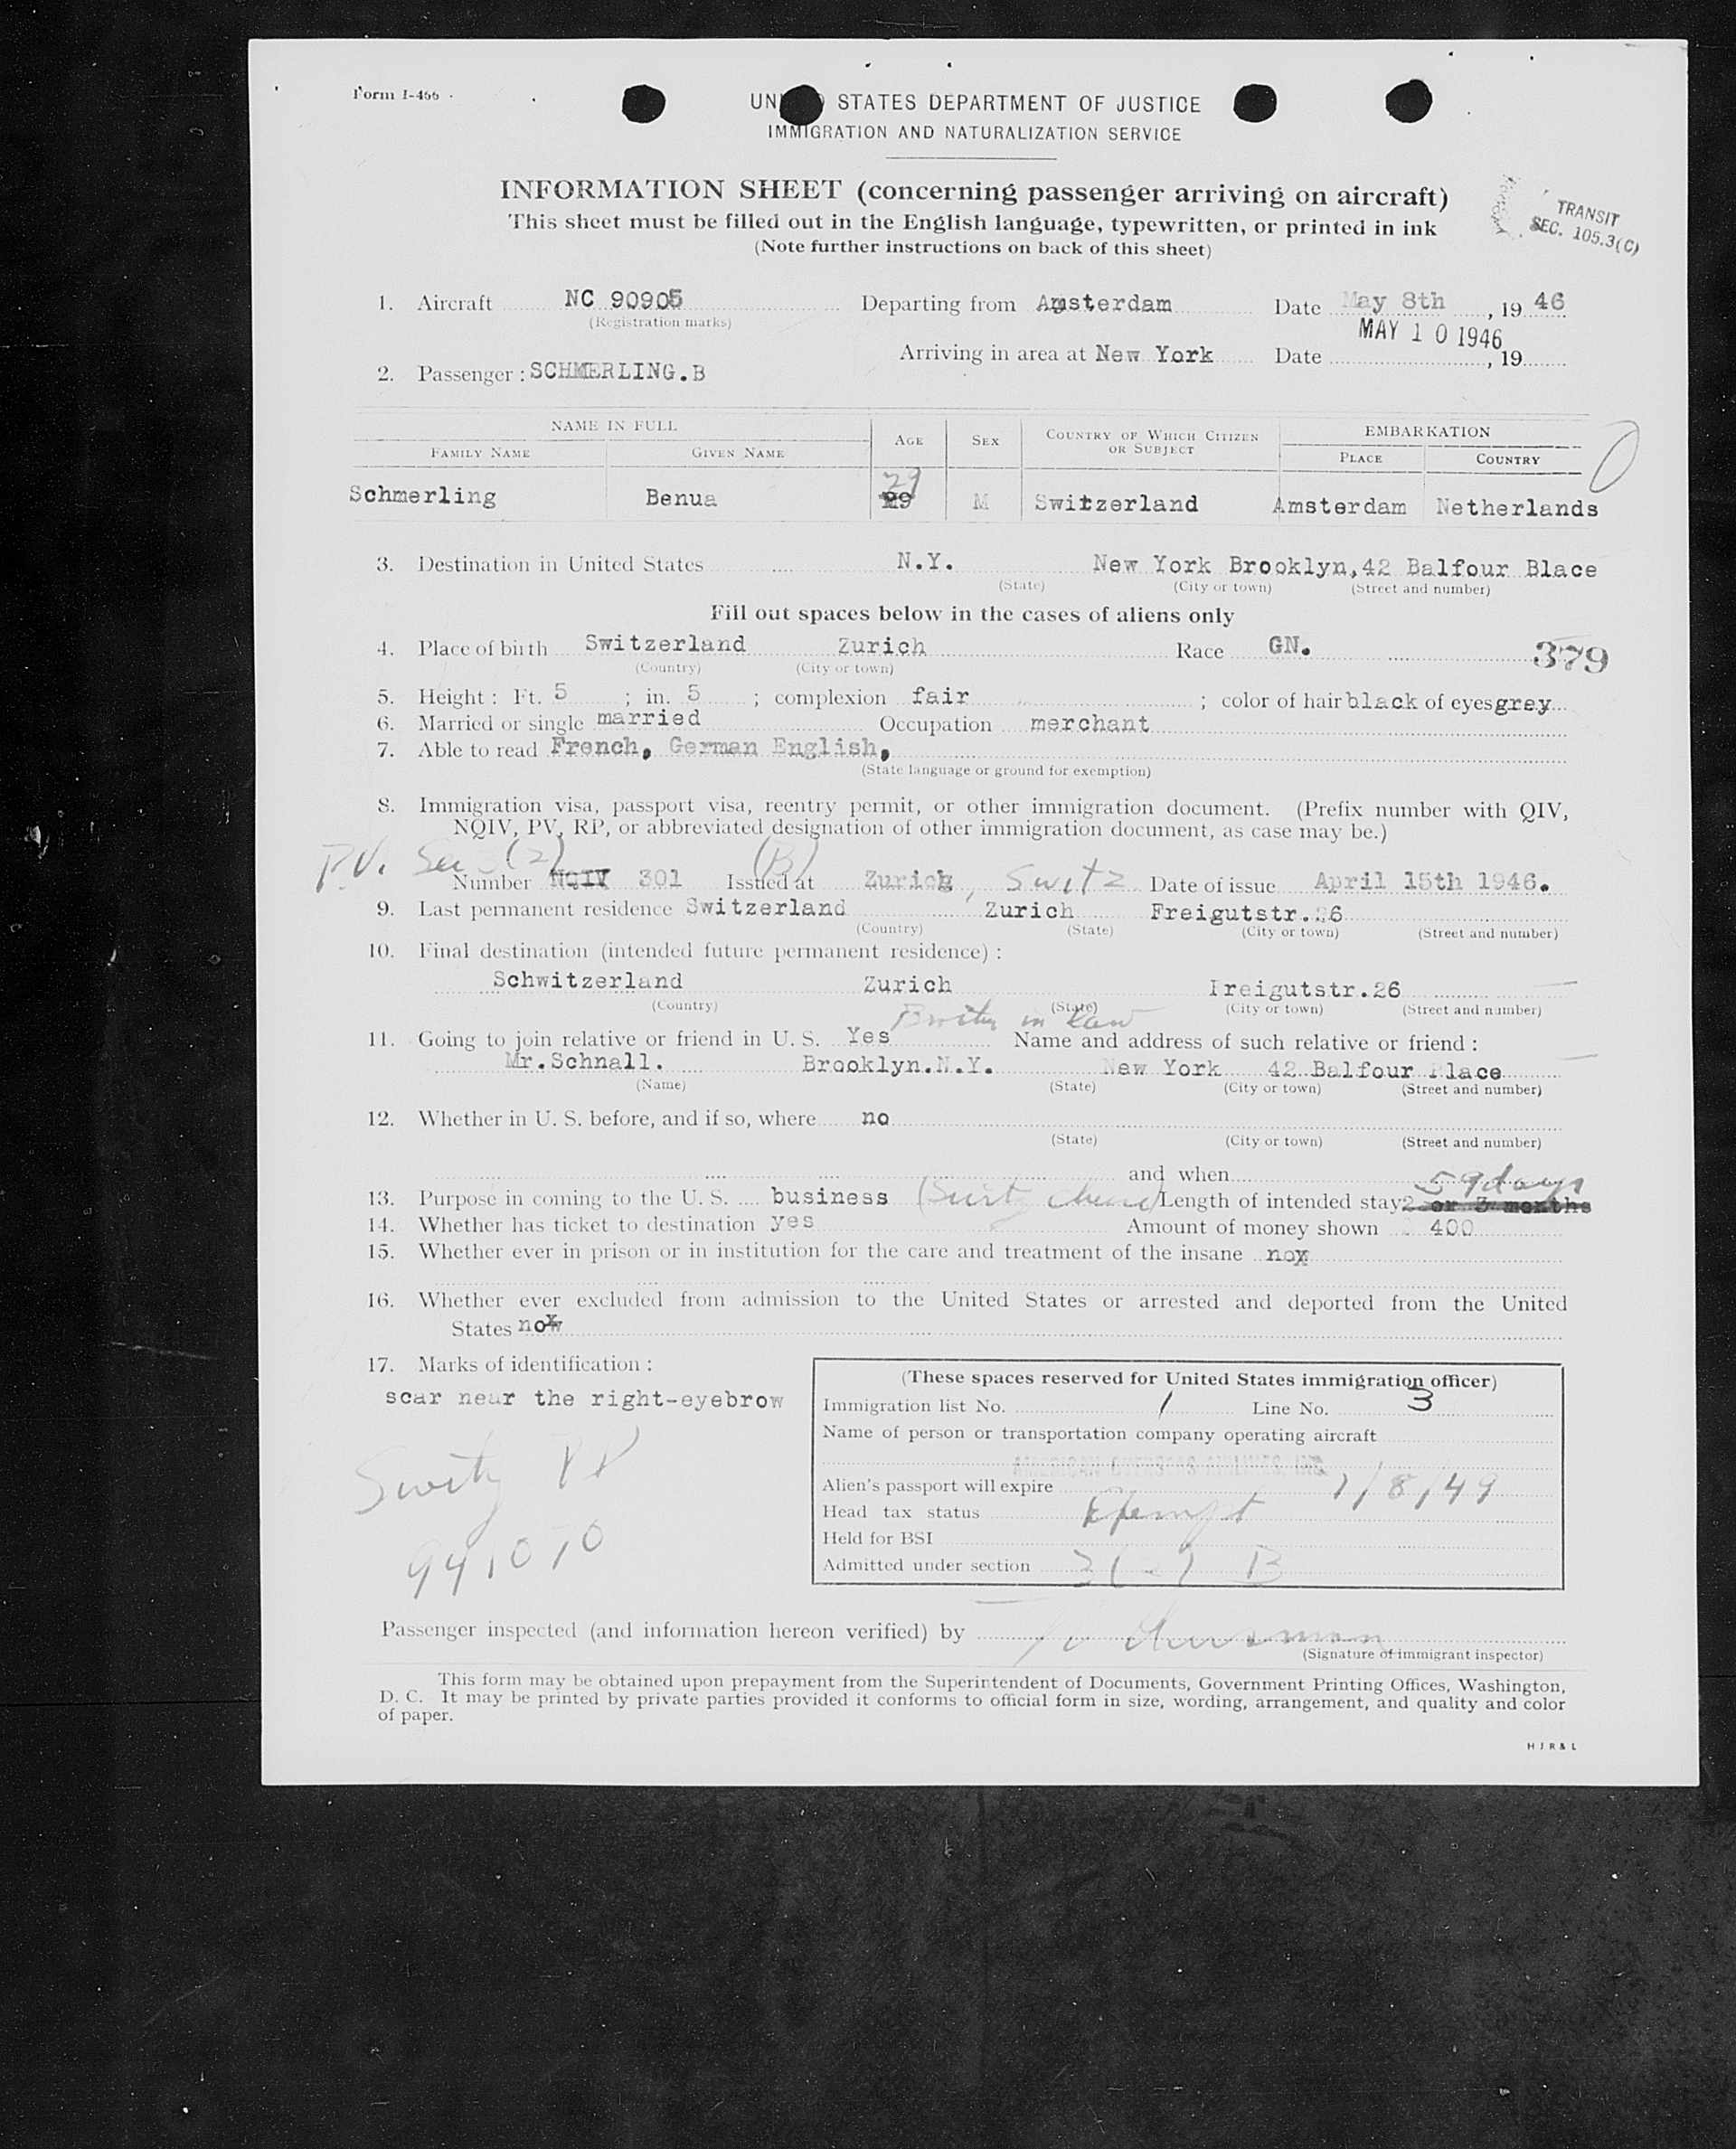 Form I-466
UNITED STATES DEPARTMENT OF JUSTICE
IMMIGRATION AND NATURALIZATION SERVICE
INFORMATION SHEET (concerning passenger arriving on aircraft)
This sheet must be filled out in the English language, typewritten, or printed in ink
(Note further instructions on back of this sheet)
TRANSIT
SEC. 105.3(C)
1. Aircraft NC 90905 Departing from Amsterdam Date May 8th, 19 46
(Registration marks)
MAY 10 1946
Arriving in area at New York Date , 19
2. Passenger : SCHMERLING.B
NAME IN FULL AGE SEX COUNTRY OF WHICH CITIZEN OR SUBJECT EMBARKATION
FAMILY NAME GIVEN NAME PLACE COUNTRY
29
Schmerling Benua 29 M Switzerland Amsterdam Netherlands
3. Destination in United States N.Y. New York Brooklyn,42 Balfour Blace
(State) (City or town) (Street and number)
Fill out spaces below in the cases of aliens only
4. Place of birth Switzerland Zurich Race GN. 379
(Country) (City or town)
5. Height : Ft. 5 ; in. 5 ; complexion fair ; color of hair black of eyes grey
6. Married or single married Occupation merchant
7. Able to read French, German English,
(State language or ground for exemption)
8. Immigration visa, passport visa, reentry permit, or other immigration document. (Prefix number with QIV,
NQIV, PV, RP, or abbreviated designation of other immigration document, as case may be.)
P.V. Sec 3 (2) (B)
Number NQIV 301 Issued at Zurich, Switz Date of issue April 15th 1946.
9. Last permanent residence Switzerland Zurich Freigutstr.26
(Country) (State) (City or town) (Street and number)
10. Final destination (intended future permanent residence) :
Schwitzerland Zurich Ireigutstr.26
(Country) (State) (City or town) (Street and number)
Brother in law
11. Going to join relative or friend in U. S. Yes Name and address of such relative or friend :
Mr.Schnall. Brooklyn.N.Y. New York 42 Balfour Place
(Name) (State) (City or town) (Street and number)
12. Whether in U. S. before, and if so, where no
(State) (City or town) (Street and number)
and when
59 days
13. Purpose in coming to the U. S. business Length of intended stay 2 or 3 months
14. Whether has ticket to destination yes Amount of money shown 400
15. Whether ever in prison or in institution for the care and treatment of the insane nox
16. Whether ever excluded from admission to the United States or arrested and deported from the United
States now
17. Marks of identification :
scar near the right-eyebrow
Switz PP
941070
(These spaces reserved for United States immigration officer)
Immigration list No. 1 Line No. 3
Name of person or transportation company operating aircraft
AMERICAN OVERSEAS AIRLINES, INC.
Alien's passport will expire 1/8/49
Head tax status Exempt
Held for BSI
Admitted under section 3(2) B
Passenger inspected (and information hereon verified) by
(Signature of immigrant inspector)
This form may be obtained upon prepayment from the Superintendent of Documents, Government Printing Offices, Washington,
D. C. It may be printed by private parties provided it conforms to official form in size, wording, arrangement, and quality and color
of paper.
H J R & L